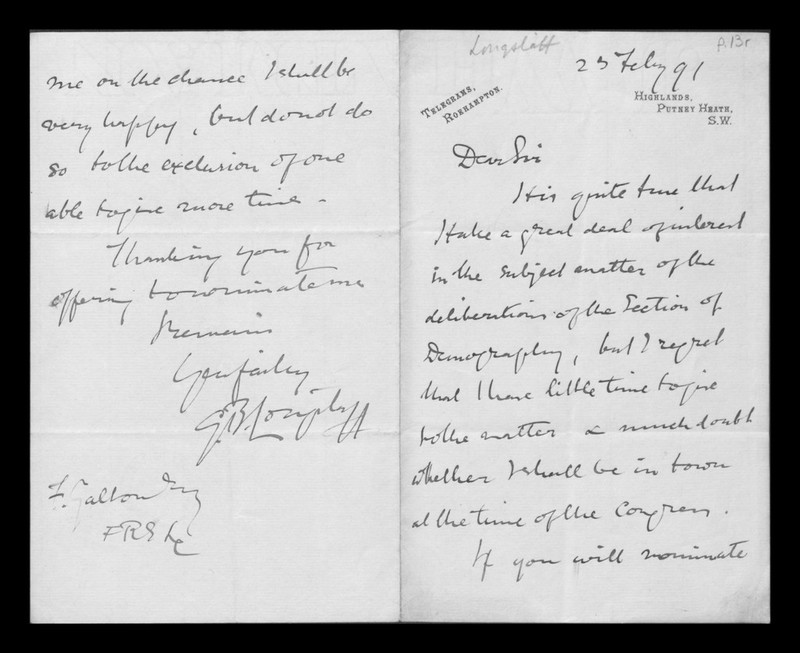 Longstaff
A13r
25 Feby 91
TELEGRAMS,
ROEHAMPTON.
HIGHLANDS,
PUTNEY HEATH,
S.W.
Dear Sir
It is quite true that
I take a great deal of interest
in the subject matter of the
deliberations of the Section of
Demography, but I regret
that I have little time to give
to the matter & much doubt
whether I shall be in town
at the time of the Congress.
If you will nominate
me on the chance I shall be
very happy, but do not do
so to the exclusion of one
able to give more time -
Thanking you for
offering to nominate me
I remain
Yours faithfully
G.B. Longstaff
F. Galton Esq
FRS &c